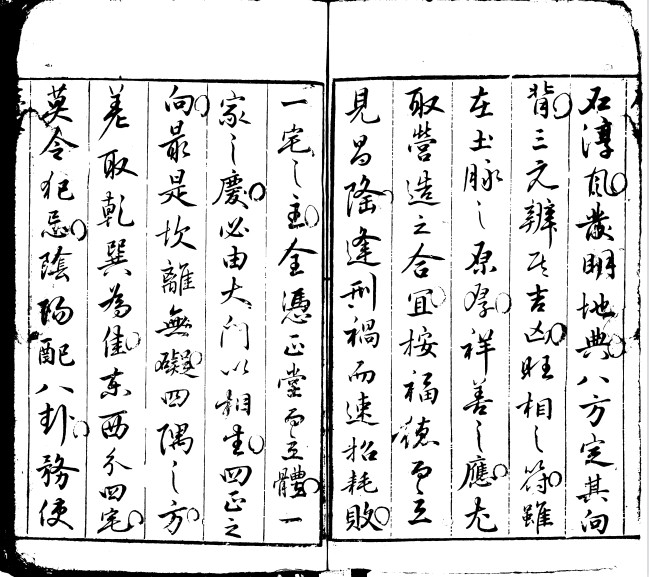 石淳風發明地典八方定其向
背三元辨其吉凶旺相之符雖
在土脉之原厚祥善之應尤
取營造之合宜按福德而立
見昌隆逢刑禍而速招耗敗
一宅之主全憑正堂而立體一
家之慶必由大門以相生四正之
向最是坎離無礙四隅之方
差取乾巽為佳東西分四宅
莫令犯忌陰陽配八卦務使